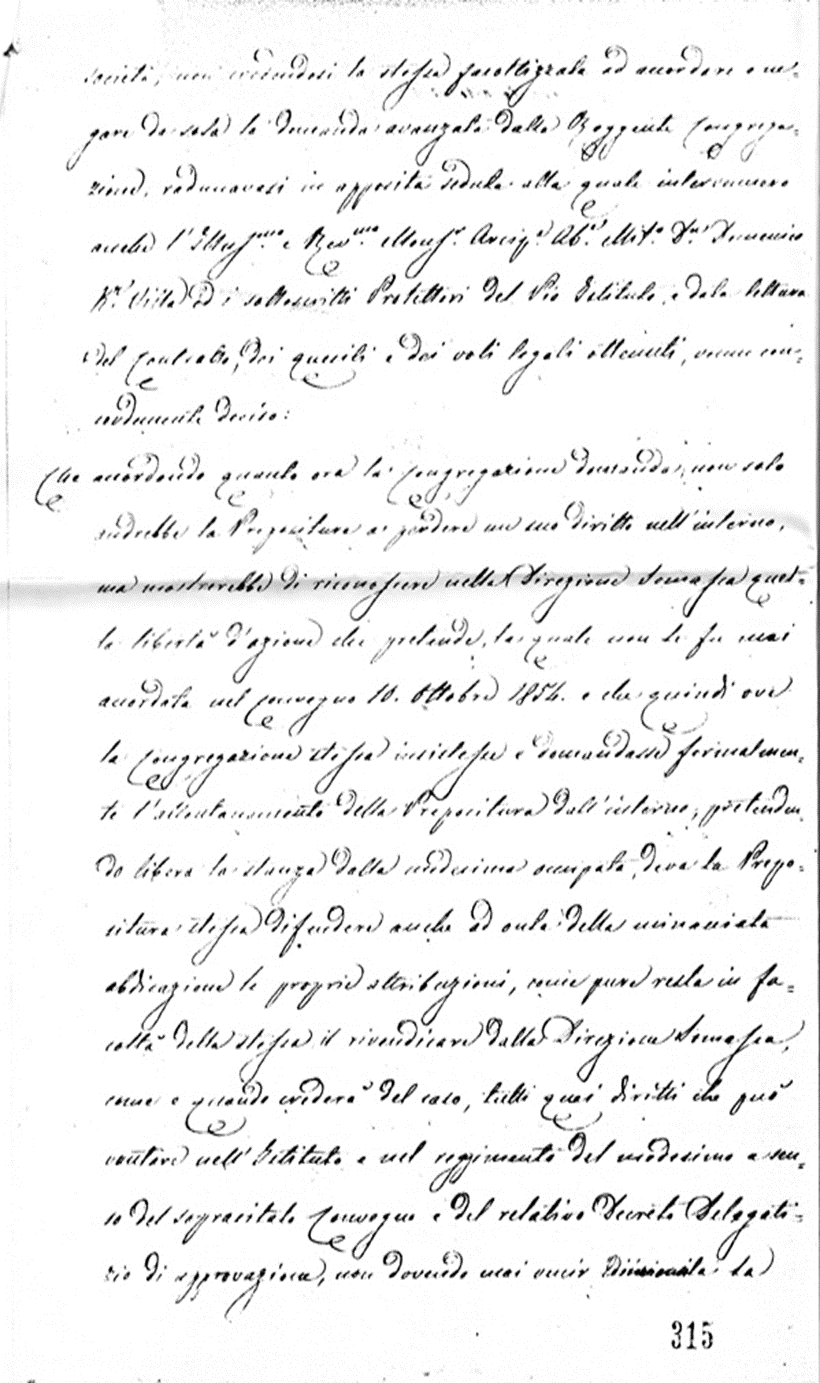 società, non credendosi la stessa facoltizzata ad accordare o ne=
gare da sola la domanda avanzata dalla Reggente Congrega=
zione, radunavasi in apposita seduta alla quale intervennero
anche l'Illus.mo e Rev.mo Monsr. Arcip.e Ab.e Mit.o Dn. Domenico
Kr. Villa ed i sottoscritti Protettori del Pio Istituto, e dala lettura
del contratto, dei quesiti e dei voti legali ottenuti, venne con=
cordemente deciso:
Che accordando quanto ora la Congregazione domanda, non solo
andrebbe la Prepositura a perdere un suo diritto nell'interno,
ma mostrerebbe di riconoscere nella Direzione Somasca quel=
la libertà d'azione che pretende, la quale non le fu mai
accordata nel convegno 10. Ottobre 1854. e che quindi ove
la Congregazione stessa insistesse e domandasse formalmen=
te l'allontanamento della Prepositura dall'interno, pretenden
do libera la stanza dalla medesima occupata, deva la Prepo=
situra stessa difendere anche ad onta della minacciata
abdicazione le proprie attribuzioni, come pure resta in fa=
coltà della stessa il rivendicare dalla Direzione Somasca,
come e quando crederà del caso, tutti quei diritti che può
vantare nell'Istituto e nel reggimento del medesimo a sen=
so del sopracitato Convegno e del relativo Decreto Delegati=
zio di approvazione, non dovendo mai venir la
315